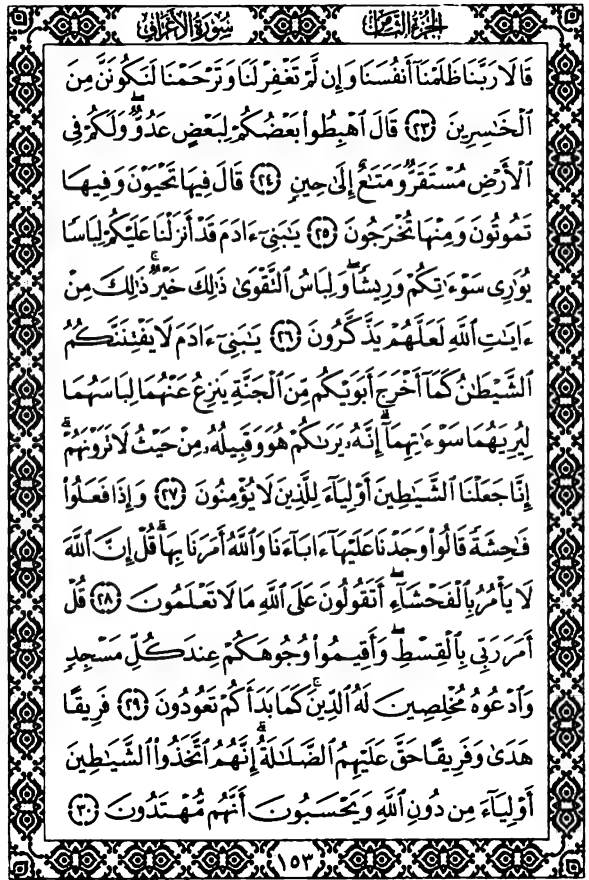 سُورَةُ الأَعْرَافِ
الجُزْءُ الثَّامِنُ
قَالَا رَبَّنَا ظَلَمْنَآ أَنفُسَنَا وَإِن لَّمْ تَغْفِرْ لَنَا وَتَرْحَمْنَا لَنَكُونَنَّ مِنَ
ٱلْخَٰسِرِينَ ﴿٢٣﴾ قَالَ ٱهْبِطُوا۟ بَعْضُكُمْ لِبَعْضٍ عَدُوٌّ ۖ وَلَكُمْ فِى
ٱلْأَرْضِ مُسْتَقَرٌّ وَمَتَٰعٌ إِلَىٰ حِينٍ ﴿٢٤﴾ قَالَ فِيهَا تَحْيَوْنَ وَفِيهَا
تَمُوتُونَ وَمِنْهَا تُخْرَجُونَ ﴿٢٥﴾ يَٰبَنِىٓ ءَادَمَ قَدْ أَنزَلْنَا عَلَيْكُمْ لِبَاسًا
يُوَٰرِى سَوْءَٰتِكُمْ وَرِيشًا ۖ وَلِبَاسُ ٱلتَّقْوَىٰ ذَٰلِكَ خَيْرٌ ۚ ذَٰلِكَ مِنْ
ءَايَٰتِ ٱللَّهِ لَعَلَّهُمْ يَذَّكَّرُونَ ﴿٢٦﴾ يَٰبَنِىٓ ءَادَمَ لَا يَفْتِنَنَّكُمُ
ٱلشَّيْطَٰنُ كَمَآ أَخْرَجَ أَبَوَيْكُم مِّنَ ٱلْجَنَّةِ يَنزِعُ عَنْهُمَا لِبَاسَهُمَا
لِيُرِيَهُمَا سَوْءَٰتِهِمَآ ۗ إِنَّهُۥ يَرَىٰكُمْ هُوَ وَقَبِيلُهُۥ مِنْ حَيْثُ لَا تَرَوْنَهُمْ ۗ
إِنَّا جَعَلْنَا ٱلشَّيَٰطِينَ أَوْلِيَآءَ لِلَّذِينَ لَا يُؤْمِنُونَ ﴿٢٧﴾ وَإِذَا فَعَلُوا۟
فَٰحِشَةً قَالُوا۟ وَجَدْنَا عَلَيْهَآ ءَابَآءَنَا وَٱللَّهُ أَمَرَنَا بِهَا ۗ قُلْ إِنَّ ٱللَّهَ
لَا يَأْمُرُ بِٱلْفَحْشَآءِ ۖ أَتَقُولُونَ عَلَى ٱللَّهِ مَا لَا تَعْلَمُونَ ﴿٢٨﴾ قُلْ
أَمَرَ رَبِّى بِٱلْقِسْطِ ۖ وَأَقِيمُوا۟ وُجُوهَكُمْ عِندَ كُلِّ مَسْجِدٍ
وَٱدْعُوهُ مُخْلِصِينَ لَهُ ٱلدِّينَ ۚ كَمَا بَدَأَكُمْ تَعُودُونَ ﴿٢٩﴾ فَرِيقًا
هَدَىٰ وَفَرِيقًا حَقَّ عَلَيْهِمُ ٱلضَّلَٰلَةُ ۗ إِنَّهُمُ ٱتَّخَذُوا۟ ٱلشَّيَٰطِينَ
أَوْلِيَآءَ مِن دُونِ ٱللَّهِ وَيَحْسَبُونَ أَنَّهُم مُّهْتَدُونَ ﴿٣٠﴾
١٥٣